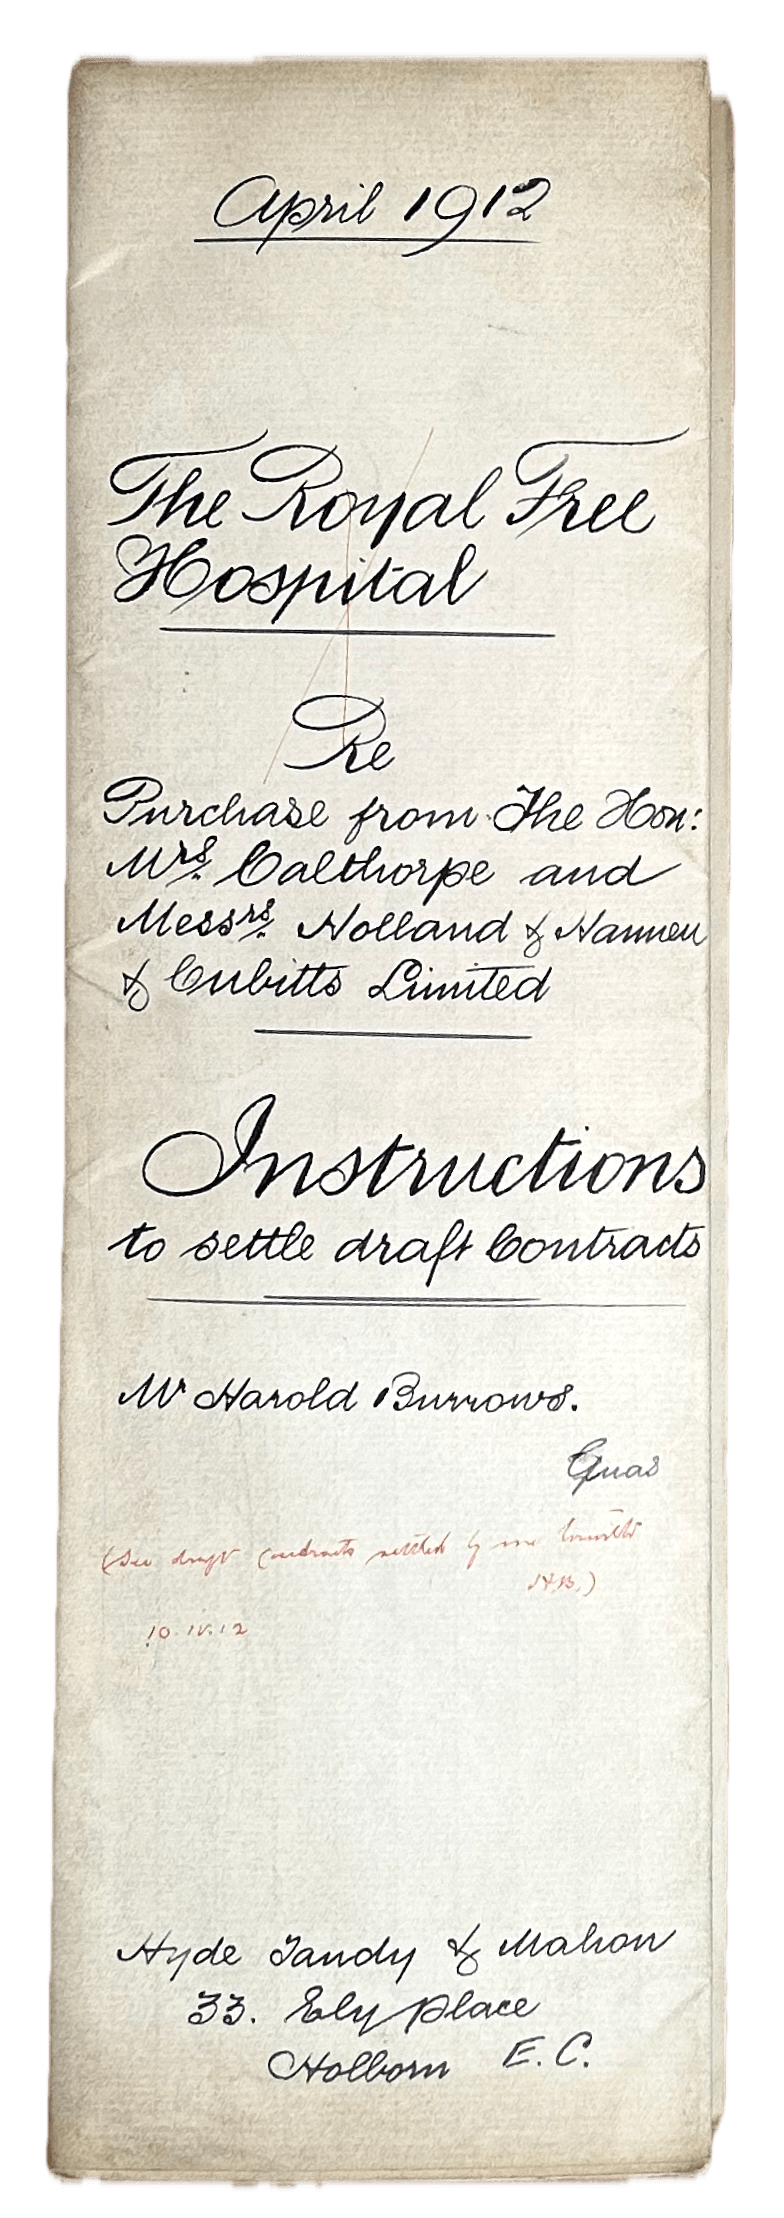 April 1912
The Royal Free
Hospital
Re
Purchase from The Hon:
Mrs. Calthorpe and
Messrs. Holland & Hannen
& Cubitts Limited
Instructions
to settle draft Contracts
Mr Harold Burrows.
Guas
(See draft Contracts settled by me herewith
H.B.)
10.IV.12
Hyde Tandy & Mahon
33. Ely Place
Holborn E.C.